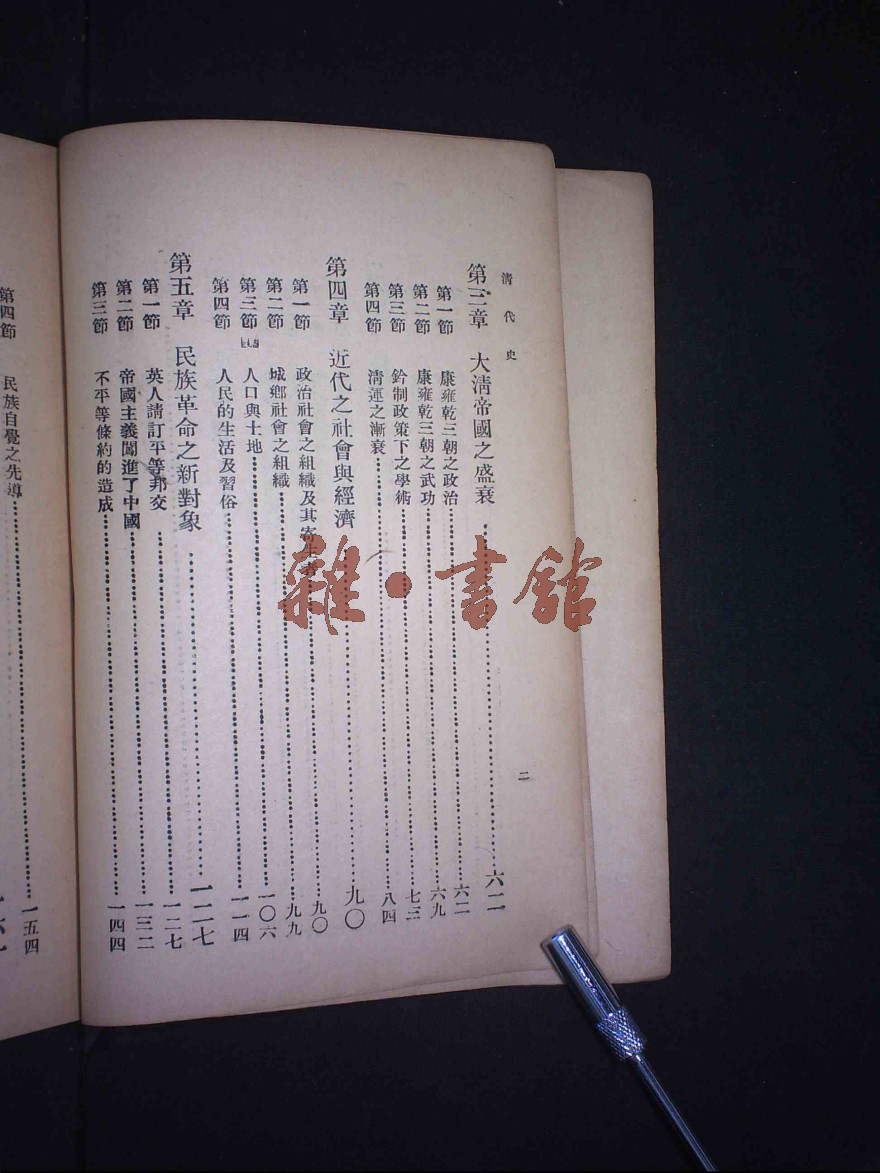 清代史
第三章 大清帝國之盛衰……六二
第一節 康雍乾三朝之政治……六二
第二節 康雍乾三朝之武功……六九
第三節 鈐制政策下之學術……七三
第四節 清運之漸衰……八四
第四章 近代之社會與經濟……九〇
第一節 政治社會之組織及其寄生者……九〇
第二節 城鄉社會之組織……九九
第三節 人口與土地……一〇六
第四節 人民的生活及習俗……一一四
第五章 民族革命之新對象……一二七
第一節 英人請訂平等邦交……一二七
第二節 帝國主義闖進了中國……一三二
第三節 不平等條約的造成……一四四
二
第四節 民族自覺之先導……一五四
雜·書館